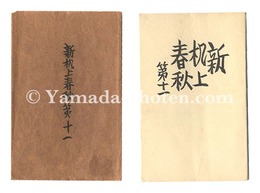 新机上春秋第十一
新
机上
春秋
第十一
© Yamada Shoten.com